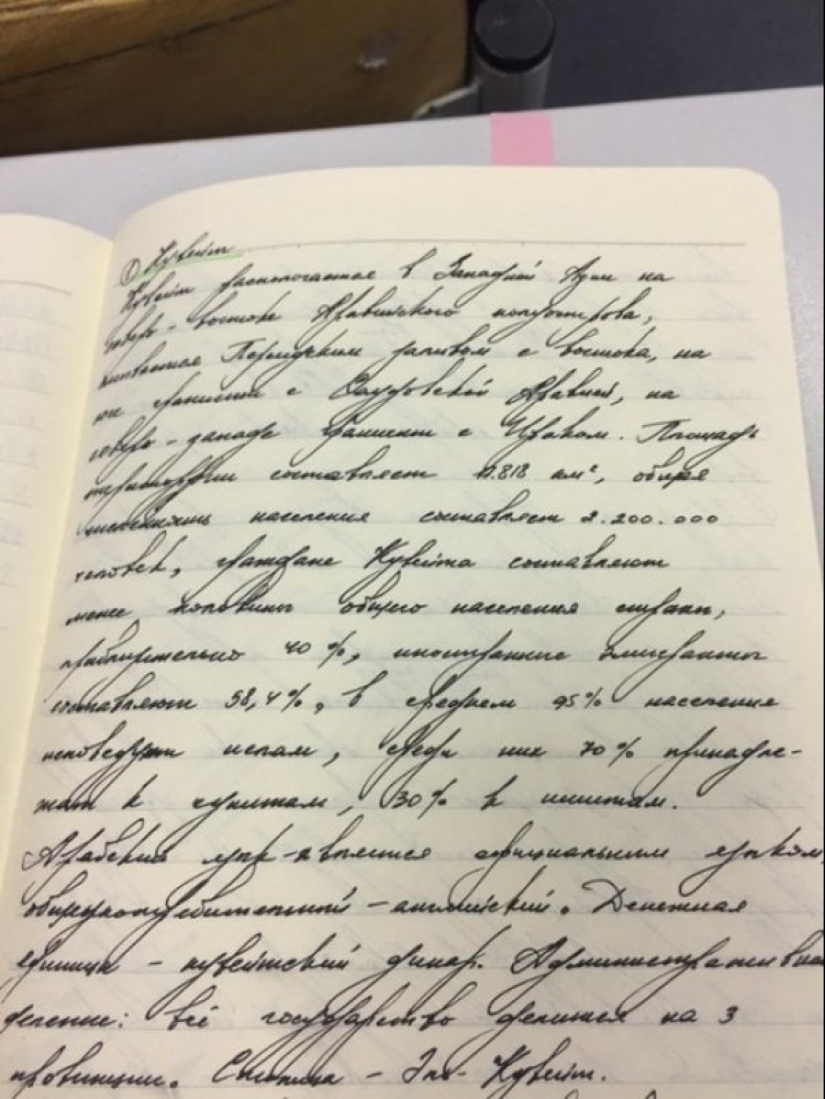 ① Кувейт
Кувейт располагается в Западной Азии на
северо-востоке Аравийского полуострова,
омывается Персидским заливом с востока, на
юге граничит с Саудовской Аравией, на
северо-западе граничит с Ираком. Площадь
территории составляет 17.818 км², общая
численность населения составляет 2.200.000
человек, граждане Кувейта составляют
менее половины общего населения страны,
приблизительно 40%, иностранные эмигранты
составляют 58,4%, в среднем 95% населения
исповедуют ислам, среди них 70% принадле-
жат к суннитам, 30% к шиитам.
Арабский язык - является официальным языком,
общеупотребительный - английский. Денежная
единица - кувейтский динар. Административное
деление: всё государство делится на 3
провинции. Столица - Эль-Кувейт.